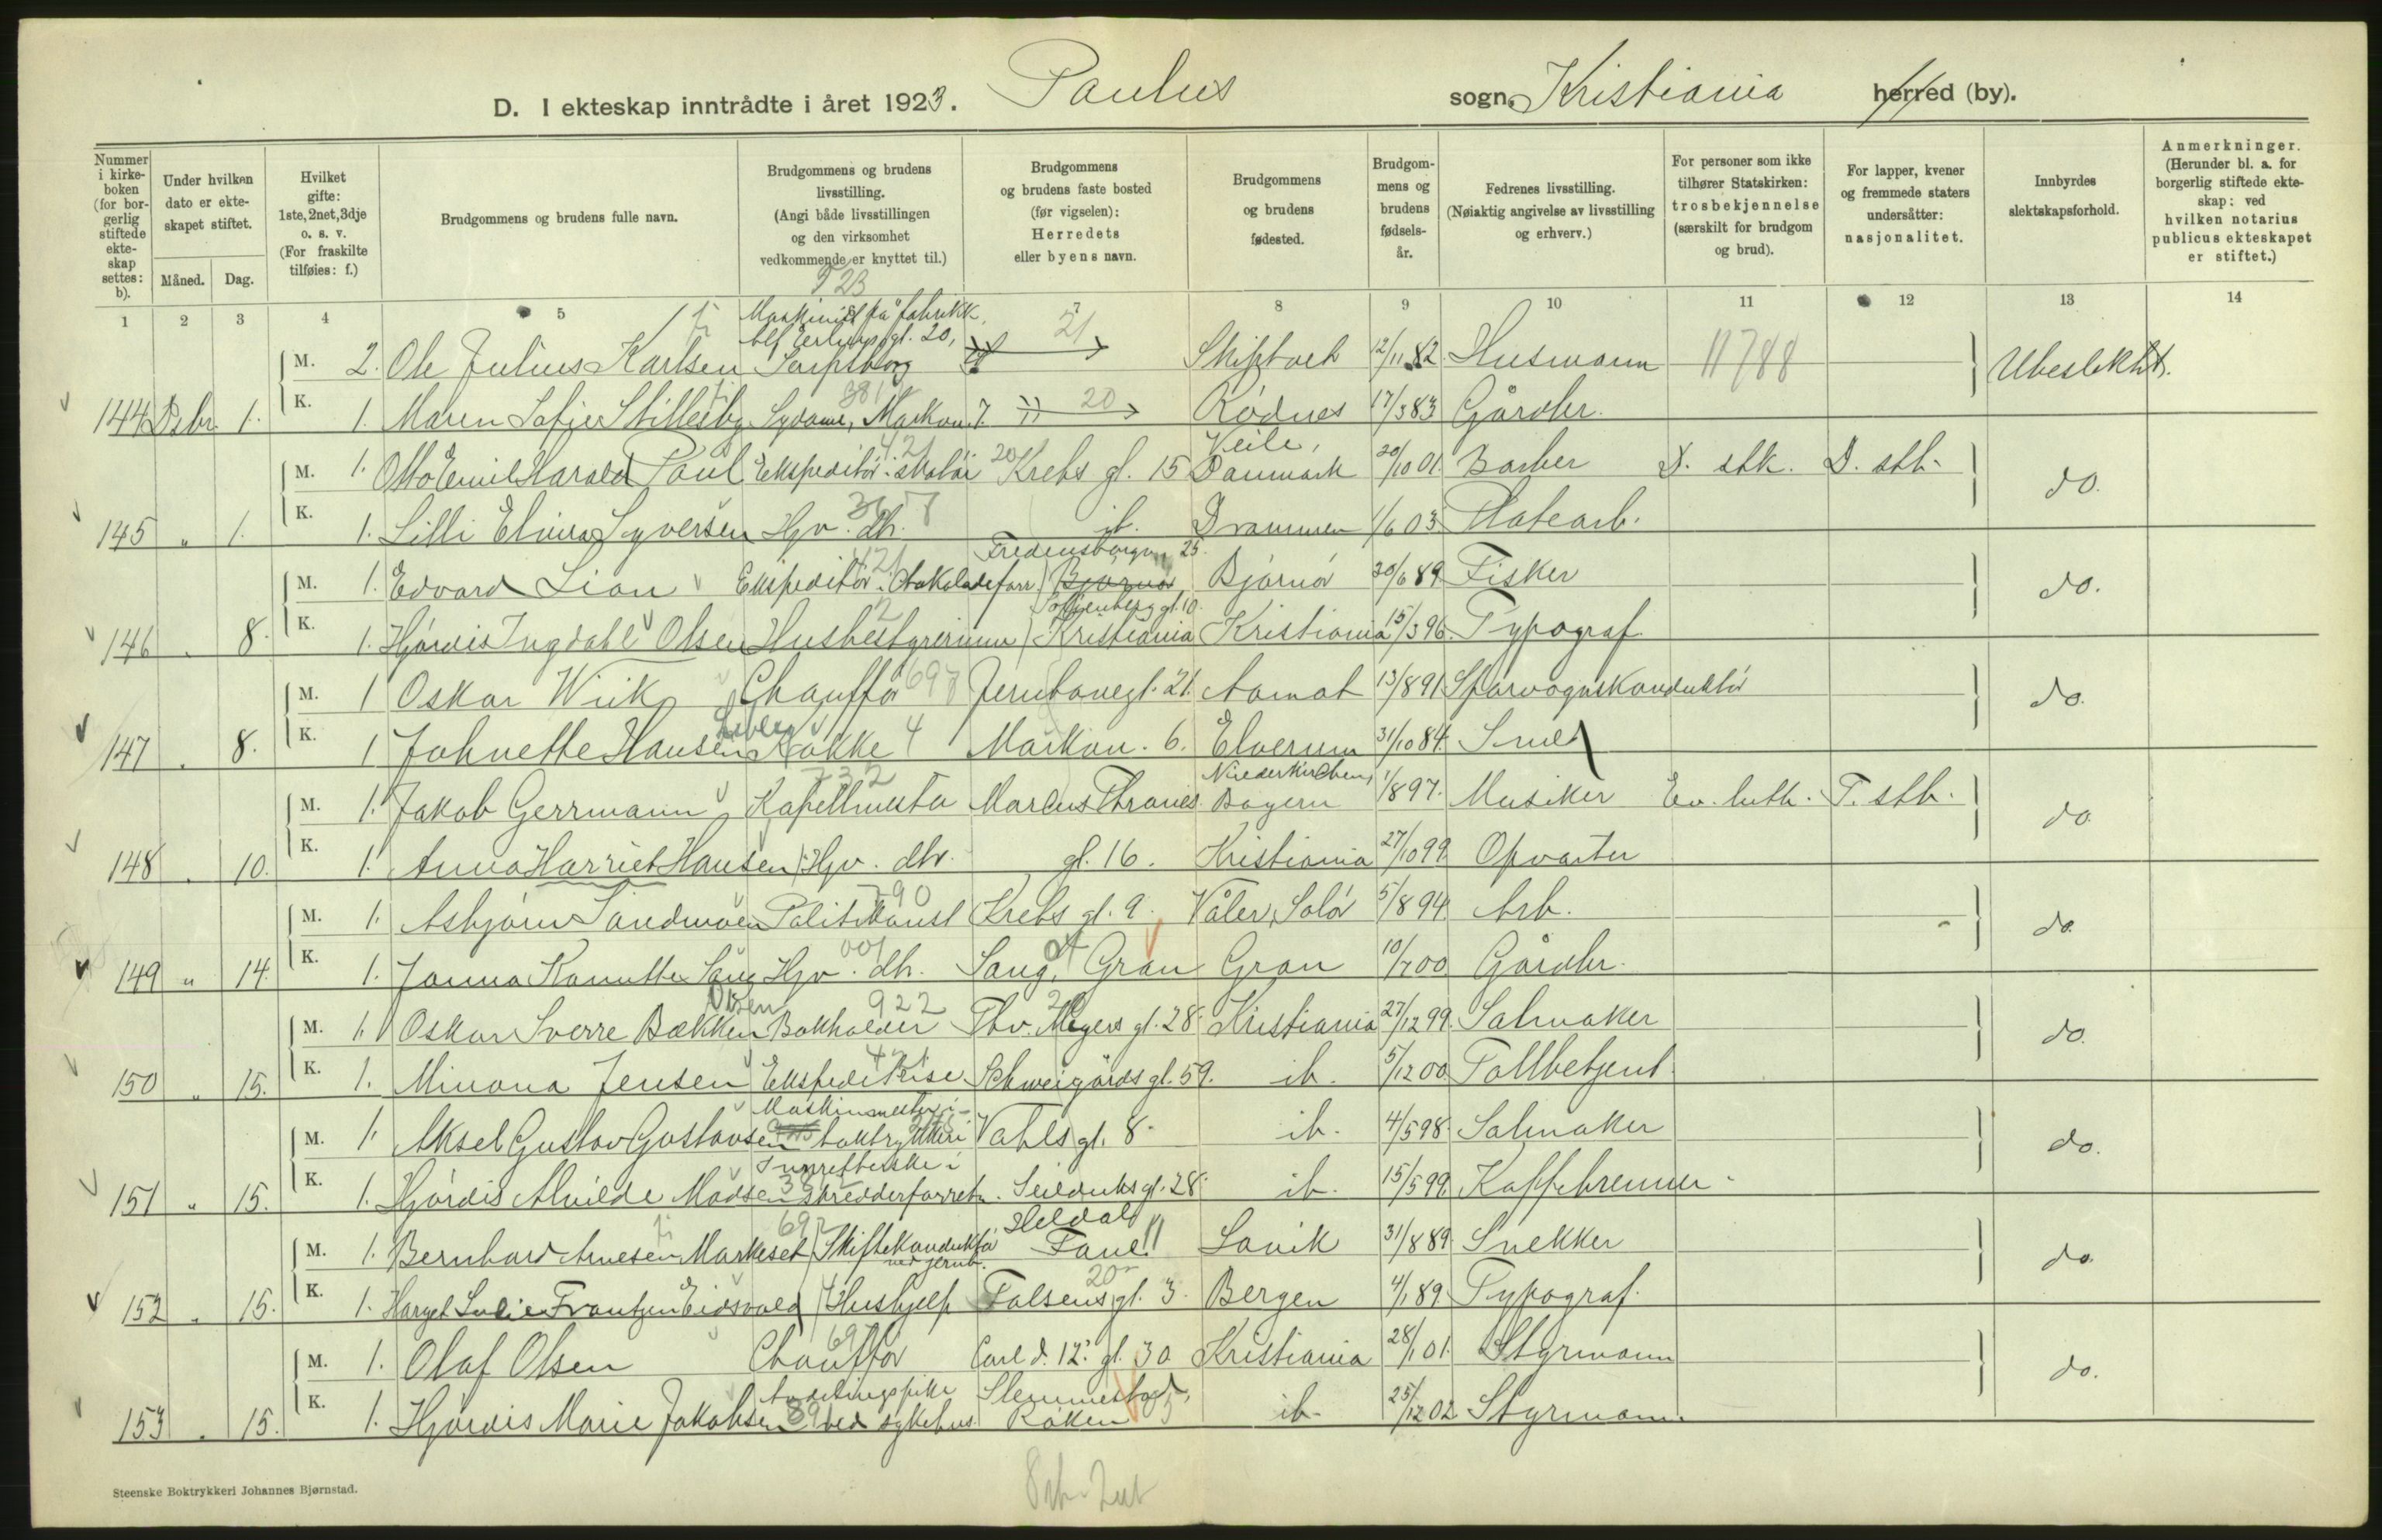 D. I ekteskap inntrådte i året 1923. Paulus sogn, Kristiania herred (by).
Nummer i kirkeboken (for borgerlig stiftede ekteskap settes: b).
Under hvilken dato er ekteskapet stiftet.
Måned. Dag.
Hvilket gifte: 1ste, 2net, 3dje o. s. v. (For fraskilte tilføies: f.)
Brudgommens og brudens fulle navn.
Brudgommens og brudens livsstilling. (Angi både livsstillingen og den virksomhet vedkommende er knyttet til.)
Brudgommens og brudens faste bosted (før vigselen): Herredets eller byens navn.
Brudgommens og brudens fødested.
Brudgommens og brudens fødselsår.
Fedrenes livsstilling. (Nøiaktig angivelse av livsstilling og erhverv.)
For personer som ikke tilhører Statskirken: trosbekjennelse (særskilt for brudgom og brud).
For lapper, kvener og fremmede staters undersåtter: nasjonalitet.
Innbyrdes slektskapsforhold.
Anmerkninger. (Herunder bl. a. for borgerlig stiftede ekteskap: ved hvilken notarius publicus ekteskapet er stiftet.)
1 2 3 4 5 7 8 9 10 11 12 13 14
723
Maskinist på fabrikk, 21
M. 2. Ole Julius Karlsen Sarpsborg Skiptvet 12/11 82. Husmann 11788 Ubeslektet.
144 Dsbr. 1. K. 1. Maren Sofie Syдame, Markvn. 7. 20 Rödnes 17/3 83 Gårdbr.
M. 1. Otto Emil Harald Paul Ekspeditör i skotöi 20 Krebs gl. 15 Veile, Danmark 20/10 01 Barber D. stk. D. stb. do.
145 " 1. K. 1. Lilli Elvira Syversen Hjv. dh. ib. Drammen 1/6 03 Platearb.
Fredensborgvn. 25.
M. 1. Edvard Lian Ekspeditör i Sjokoladeforr. Bjørnör Bjørnör 20/6 89 Fisker do.
Sofienberg gl. 10.
146 " 8. K. 1. Hjördis Ingdahl Olsen Husbestyrerinne Kristiania Kristiania 15/3 96. Typograf
M. 1 Oskar Wiik Chaufför 697 Jernbanegt. 21. Aamot 13/8 91 Sporvognskonduktör do.
147 " 8. K. 1 Johnette Hansen Kokke 4 Markvn. 6. Elverum 31/10 84. Smed
732 Niederkirchen,
M. 1. Jakob Gerrmann Kapellmester Marcus Thranes Bayern 1/8 97. Musiker Ev. luth. T. stb. do.
148 " 10. K. 1. Anna Harriet Hansen Hjv. dtr. gl. 16. Kristiania 27/10 99 Opvarter
M. 1. Asbjørn Sandmoen Politikonst 790 Krebs gl. 9. Våler, Solör 5/8 94. Arb. do.
149 " 14. K. 1. Janna Kanutte Sang Hjv. dh. Sang, Gran Gran 10/7 00 Gårdbr.
Olsen 922
M. 1. Oskar Sverre Bækken Bokholder Thv. Meyers gl. 28. Kristiania 27/12 99. Salmaker do.
150 " 15. K. 1. Minona Jensen Ekspeditrise Schweigårds gl. 59. ib. 5/12 00 Tollbetjent.
Maskinmester i
M. 1. Aksel Gustav Gustavsen boktrykkeri Vahls gl. 8. ib. 4/5 98. Salmaker do.
151 " 15. K. 1. Hjördis Alvilde Madsen skredderforretn. Seilduks gl. 28. ib. 15/5 99. Kaffebrenner.
697 Heldal
M. 1. Bernhard Arnesen Markeset Skiftekonduktör ved jernb. Fane. Lavik 31/8 89. Snekker do.
152 " 15. K. 1. Eidsvold Hushjelp Falsens gl. 3. Bergen 4/1 89. Typograf.
M. 1. Olaf Olsen Chaufför 697 Carl d. 12. gl. 30 Kristiania 28/1 01. Styrmann do.
Avdelingspike Slemmestad,
153 " 15. K. 1. Hjördis Marie Jakobsen ved sykehus Röken ib. 25/12 02 Styrmann.
Steenske Boktrykkeri Johannes Bjørnstad.